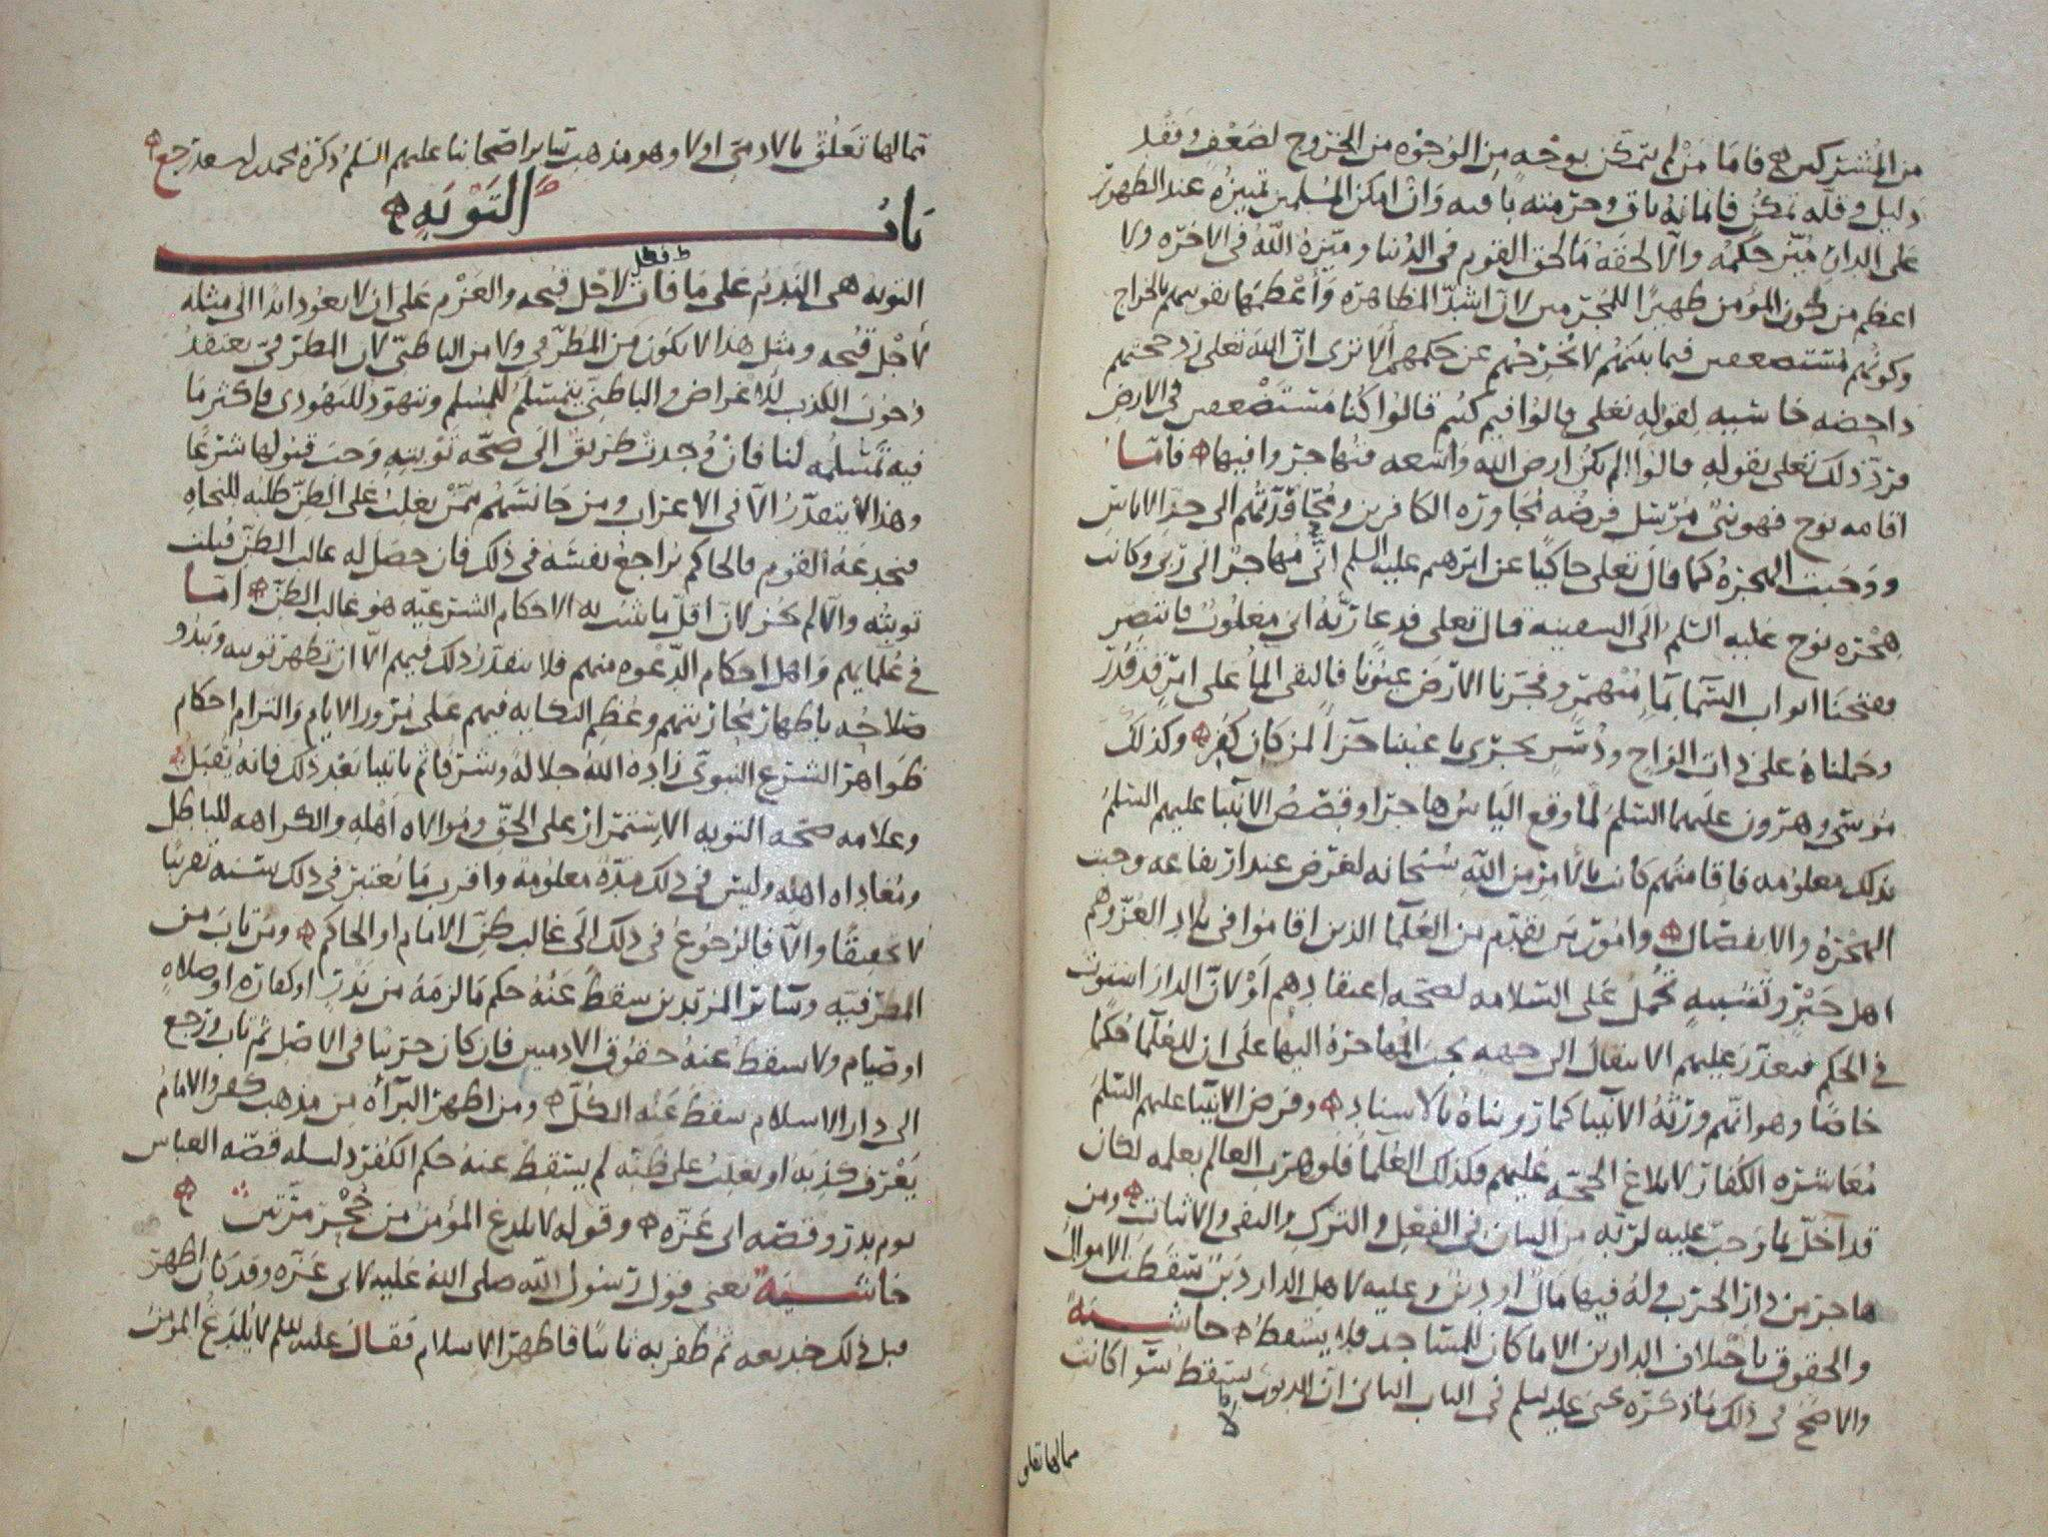 من المشتركين فاما من لم يتمكن بوجه من الوجوه من الخروج لضعف وفقد
دليل وقله تمكن فايمانه باق وحرمته باقيه وان امكن المسلمين تمييزه عند الظهور
على الدار ميز حكمه والا لحقه ما لحق القوم في الدنيا وميزه الله في الاخره ولا
اعظم من كون المؤمن ظهيرا للمجرمين لان اشد المظاهره واعظمها تقويتهم بالخراج
وكونهم مستضعفين فيما بينهم لا يخرجهم عن حكمهم الا ترى ان الله تعلى رد حجتهم
داحضه خاسيه لقوله تعلى قالوا فيم كنتم قالوا كنا مستضعفين في الارض
فرد ذلك تعلى بقوله قالوا الم تكن ارض الله واسعه فتهاجروا فيها فاما
اقامه نوح فهو نبي مرسل فرضه مجاوره الكافرين ومحاقدتهم الى حد الاياس
ووجبت الهجره كما قال تعلى حاكيا عن ابرهيم عليه السلم اني مهاجر الى ربي وكانت
هجره نوح عليه السلم الى السفينه قال تعلى فدعا ربه اني مغلوب فانتصر
ففتحنا ابواب السما بما منهمر وفجرنا الارض عيونا فالتقى الما على امر قد قدر
وحملناه على ذات الواح ودسر تجري باعيننا جزا لمن كان كفر وكذلك
موسى وهرون عليهما السلم لما وقع الياس هاجرا وقصص الانبيا عليهم السلم
بذلك معلومه فاقامتهم كانت بالامر من الله سبحانه لغرض عند ارتفاعه وجبت
الهجره والانفصال وامور من تقدم من العلما الذين اقاموا في بلاد الغز وهم
اهل جبر وتشبيه تحمل على السلامه لصحه اعتقادهم او لان الدار استوت
في الحكم فتعذر عليهم الانتقال الى جهه تجب المهاجره اليها على ان للعلما حكما
خاصا وهو انهم ورثه الانبيا كما رويناه بالاسناد وفرض الانبيا عليهم السلم
معاشره الكفار لابلاغ الحجه عليهم فكذلك العلما فلو هرب العالم بعلمه لكان
قد اخل بما وجب عليه لربه من البيان في الفعل والترك والنفي والاثبات ومن
هاجر من دار الحرب وله فيها مال او دين وعليه لاهل الدار دين سقطت الاموال
والحقوق باختلاف الدارين الا ما كان للمساجد فلا يسقط حاشيه
والاصح في ذلك ما ذكره في الباب الثاني ان الديون لا تسقط سوا كانت
مما لها تعلق
مما لها تعلق بالادمي او لا وهو مذهب ساير اصحابنا عليهم السلم ذكره محمد بن اسعد رجع
باب التوبه
التوبه هي الندم على ما فات لاجل قبحه والعزم على ان لا يعود ابدا الى مثله
لاجل قبحه ومثل هذا لا يكون من المطرفي ولا من الباطني لان المطرفي يعتقد
وجوب الكذب للاغراض والباطني يتمسلم للمسلم ويتهود لليهودي فاكثر ما
فيه تمسلمه لنا فان وجدت طريق الى صحه توبته وجب قبولها شرعا
وهذا لا يتقدر الا في الاعراب ومن جانسهم ممن يغلب على الظن طلبه للنجاه
فخدعه القوم فالحاكم يراجع نفسه في ذلك فان حصل له غالب الظن قبلت
توبته والا لم تجز لان اقل ما تثبت به الاحكام الشرعيه هو غالب الظن اما
في علمايهم واهل احكام الدعوه منهم فلا يتقدر ذلك فيهم الا ان تظهر توبته ويبدو
صلاحه باظهار مجازيتهم وعظم النكايه فيهم على مرور الايام والتزام احكام
ظواهر الشرع النبوي زاده الله جلاله وشرفا ثم ياتينا بعد ذلك فانه يقبل
وعلامه صحه التوبه الاستمرار على الحق وموالاه اهله والكراهه للباطل
ومعاداه اهله وليس في ذلك مده معلومه واقرب ما يعتبر في ذلك سنه تقريبا
لا تحقيقا والا فالرجوع في ذلك الى غالب ظن الامام او الحاكم ومن تاب من
المطرفيه وساير المرتدين سقط عنه حكم ما لزمه من نذر او كفاره او صلاه
او صيام ولا يسقط عنه حقوق الادميين فان كان حربيا في الاصل ثم تاب ورجع
الى دار الاسلام سقط عنه الكل ومن اظهر البرآه من مذهب كفر والامام
يعرف كذبه او يغلب على ظنه لم يسقط عنه حكم الكفر دليله قصه العباس
يوم بدر وقصه ابي عزه وقوله لا يلدغ المؤمن من جحر مرتين
حاشيه يعني قول رسول الله صلى الله عليه لابي عزه وقد كان اظهر
قبل ذلك خديعه ثم ظفر به ثانيا فاظهر الاسلام فقال عليه السلم لا يلدغ المؤمن